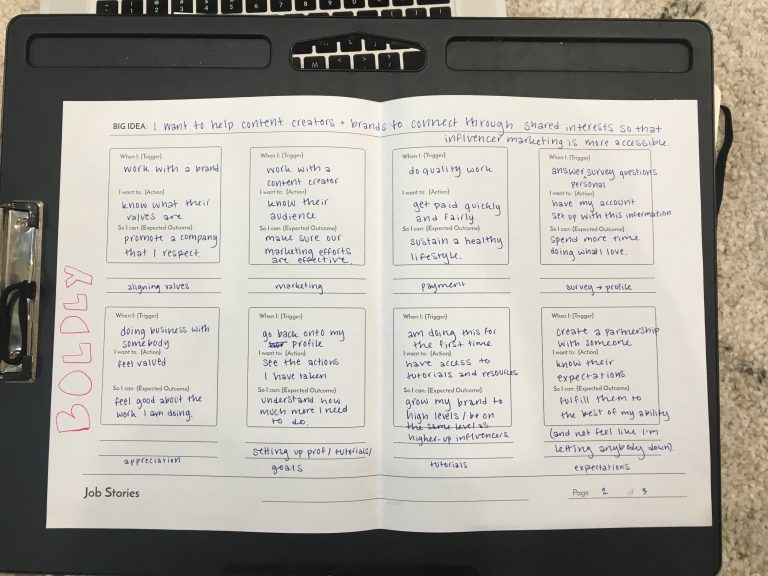 BIG IDEA: I want to help content creators + brands to connect through shared interests so that
influencer marketing is more accessible.
When I: {Trigger}
work with a brand
I want to: {Action}
know what their
values are
So I Can: {Expected Outcome}
promote a company
that I respect
aligning values
When I: {Trigger}
work with a
content creator
I want to: {Action}
know their
audience
So I Can: {Expected Outcome}
make sure our
marketing efforts
are effective.
marketing
When I: {Trigger}
do quality work
I want to: {Action}
get paid quickly
and fairly
So I Can: {Expected Outcome}
sustain a healthy
lifestyle.
payment
When I: {Trigger}
answer survey questions
personal
I want to: {Action}
have my account
set up with this information
So I Can: {Expected Outcome}
spend more time
doing what I love.
survey → profile
BOLDLY
When I: {Trigger}
doing business with
somebody
I want to: {Action}
feel valued
So I Can: {Expected Outcome}
feel good about the
work I am doing.
appreciation
When I: {Trigger}
go back onto my
profile
I want to: {Action}
see the actions
I have taken
So I Can: {Expected Outcome}
understand how
much more I need
to do.
setting up prof / tutorials /
goals
When I: {Trigger}
am doing this for
the first time
I want to: {Action}
have access to
tutorials and resources
So I Can: {Expected Outcome}
grow my brand to
high levels / be on
the same level as
higher-up influencers
tutorials
When I: {Trigger}
create a partnership
with someone
I want to: {Action}
know their
expectations
So I Can: {Expected Outcome}
fulfill them to
the best of my ability
(and not feel like I'm
letting anybody down).
expectations
Job Stories
Page 2 of 3